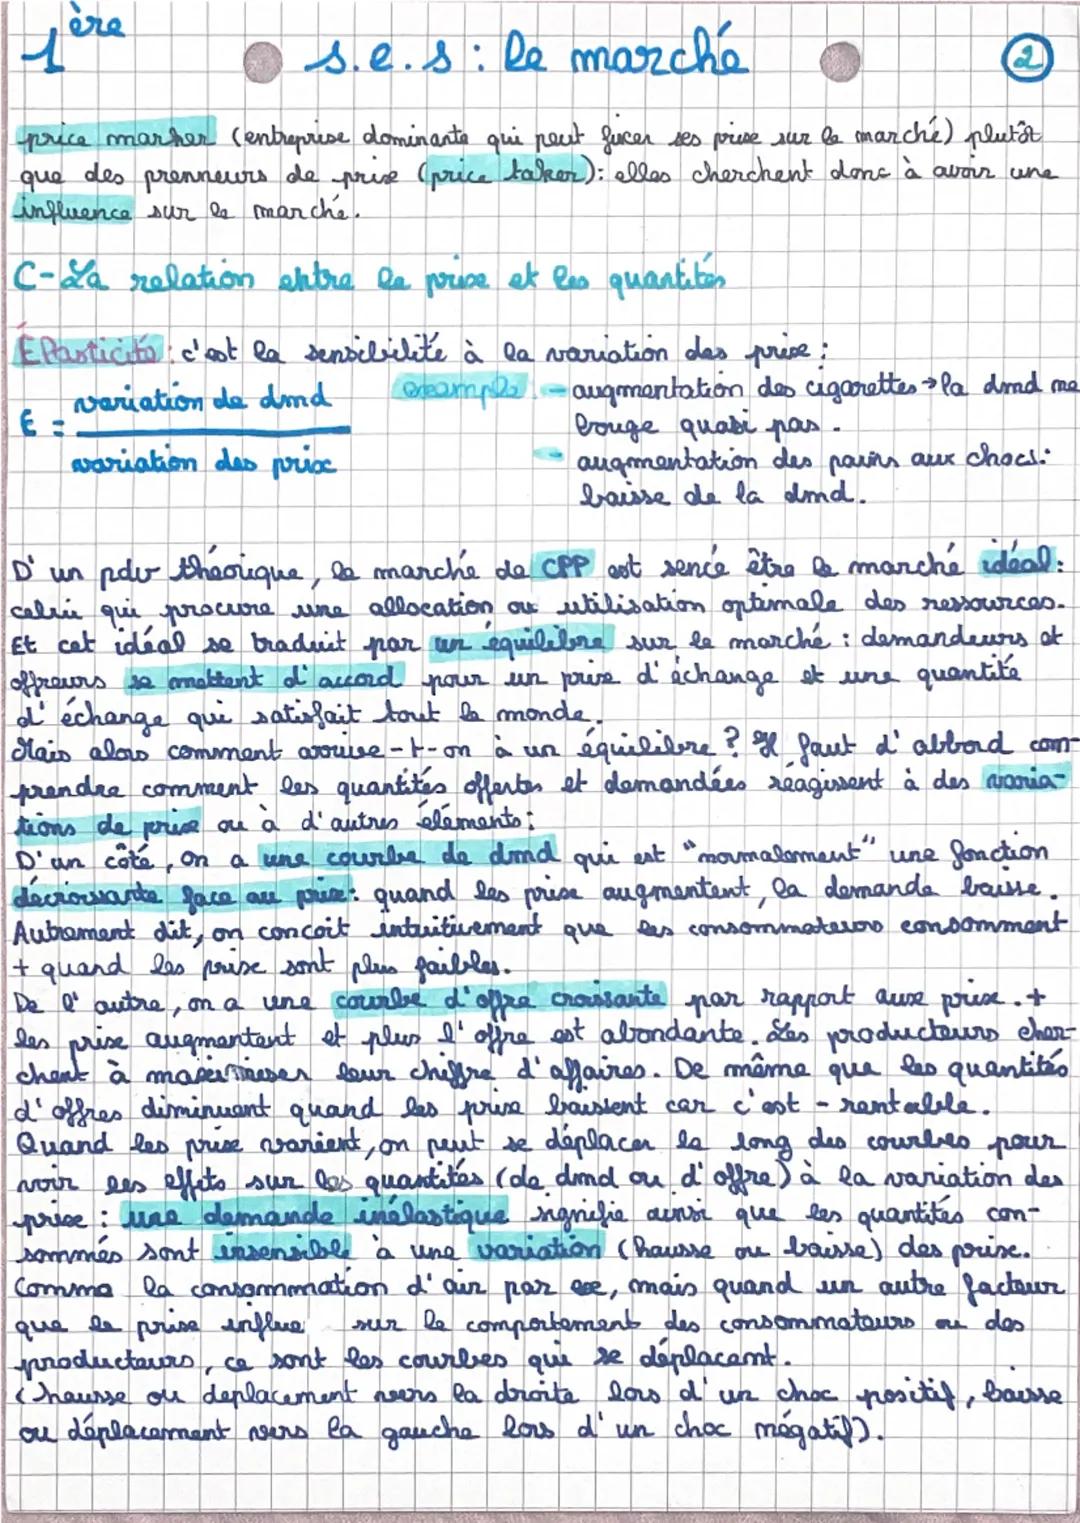 1ère
s.e.s : le marché
2
price marker (entreprise dominante qui peut fixer ses prix sur le marché) plutôt
que des prenneurs de prix (price taker): elles cherchent donc à avoir une
influence sur le marché.
C- La relation entre le prix et les quantités
Élasticité : c'est la sensibilité à la variation des prix :
E = variation de dmd
variation des prix
exemple - augmentation des cigarettes → la dmd ne
bouge quasi pas.
- augmentation des pains aux chocs:
baisse de la dmd.
D'un pdv théorique, le marché de CPP est sencé être le marché idéal:
celui qui procure une allocation ou utilisation optimale des ressources.
Et cet idéal se traduit par un équilibre sur le marché : demandeurs et
offreurs se mettent d'accord pour un prix d'échange et une quantité
d'échange qui satisfait tout le monde.
Mais alors comment arrive-t-on à un équilibre ? Il faut d'abbord com-
prendre comment les quantités offertes et demandées réagissent à des varia-
tions de prix ou à d'autres éléments:
D'un côté, on a une courbe de dmd qui est "normalement" une fonction
décroissante face au prix: quand les prix augmentent, la demande baisse.
Autrement dit, on concoit intuitivement que les consommateurs consomment
+ quand les prix sont plus faibles.
De l'autre, on a une courbe d'offre croissante par rapport aux prix. +
les prix augmentent et plus l'offre est abondante. Les producteurs cher-
chent à maximiser leur chiffre d'affaires. De même que les quantités
d'offres diminuent quand les prix baissent car c'est - rentable.
Quand les prix varient, on peut se déplacer le long des courbes pour
voir les effets sur les quantités (de dmd ou d'offre) à la variation des
prix : une demande inélastique signifie ainsi que les quantités con-
sommés sont insensible à une variation (hausse ou baisse) des prix.
Comme la consommation d'air par ex, mais quand un autre facteur
que le prix influe sur le comportement des consommateurs ou des
producteurs, ce sont les courbes qui se déplacent.
(hausse ou déplacement vers la droite lors d'un choc positif, baisse
ou déplacement vers la gauche lors d'un choc négatif).